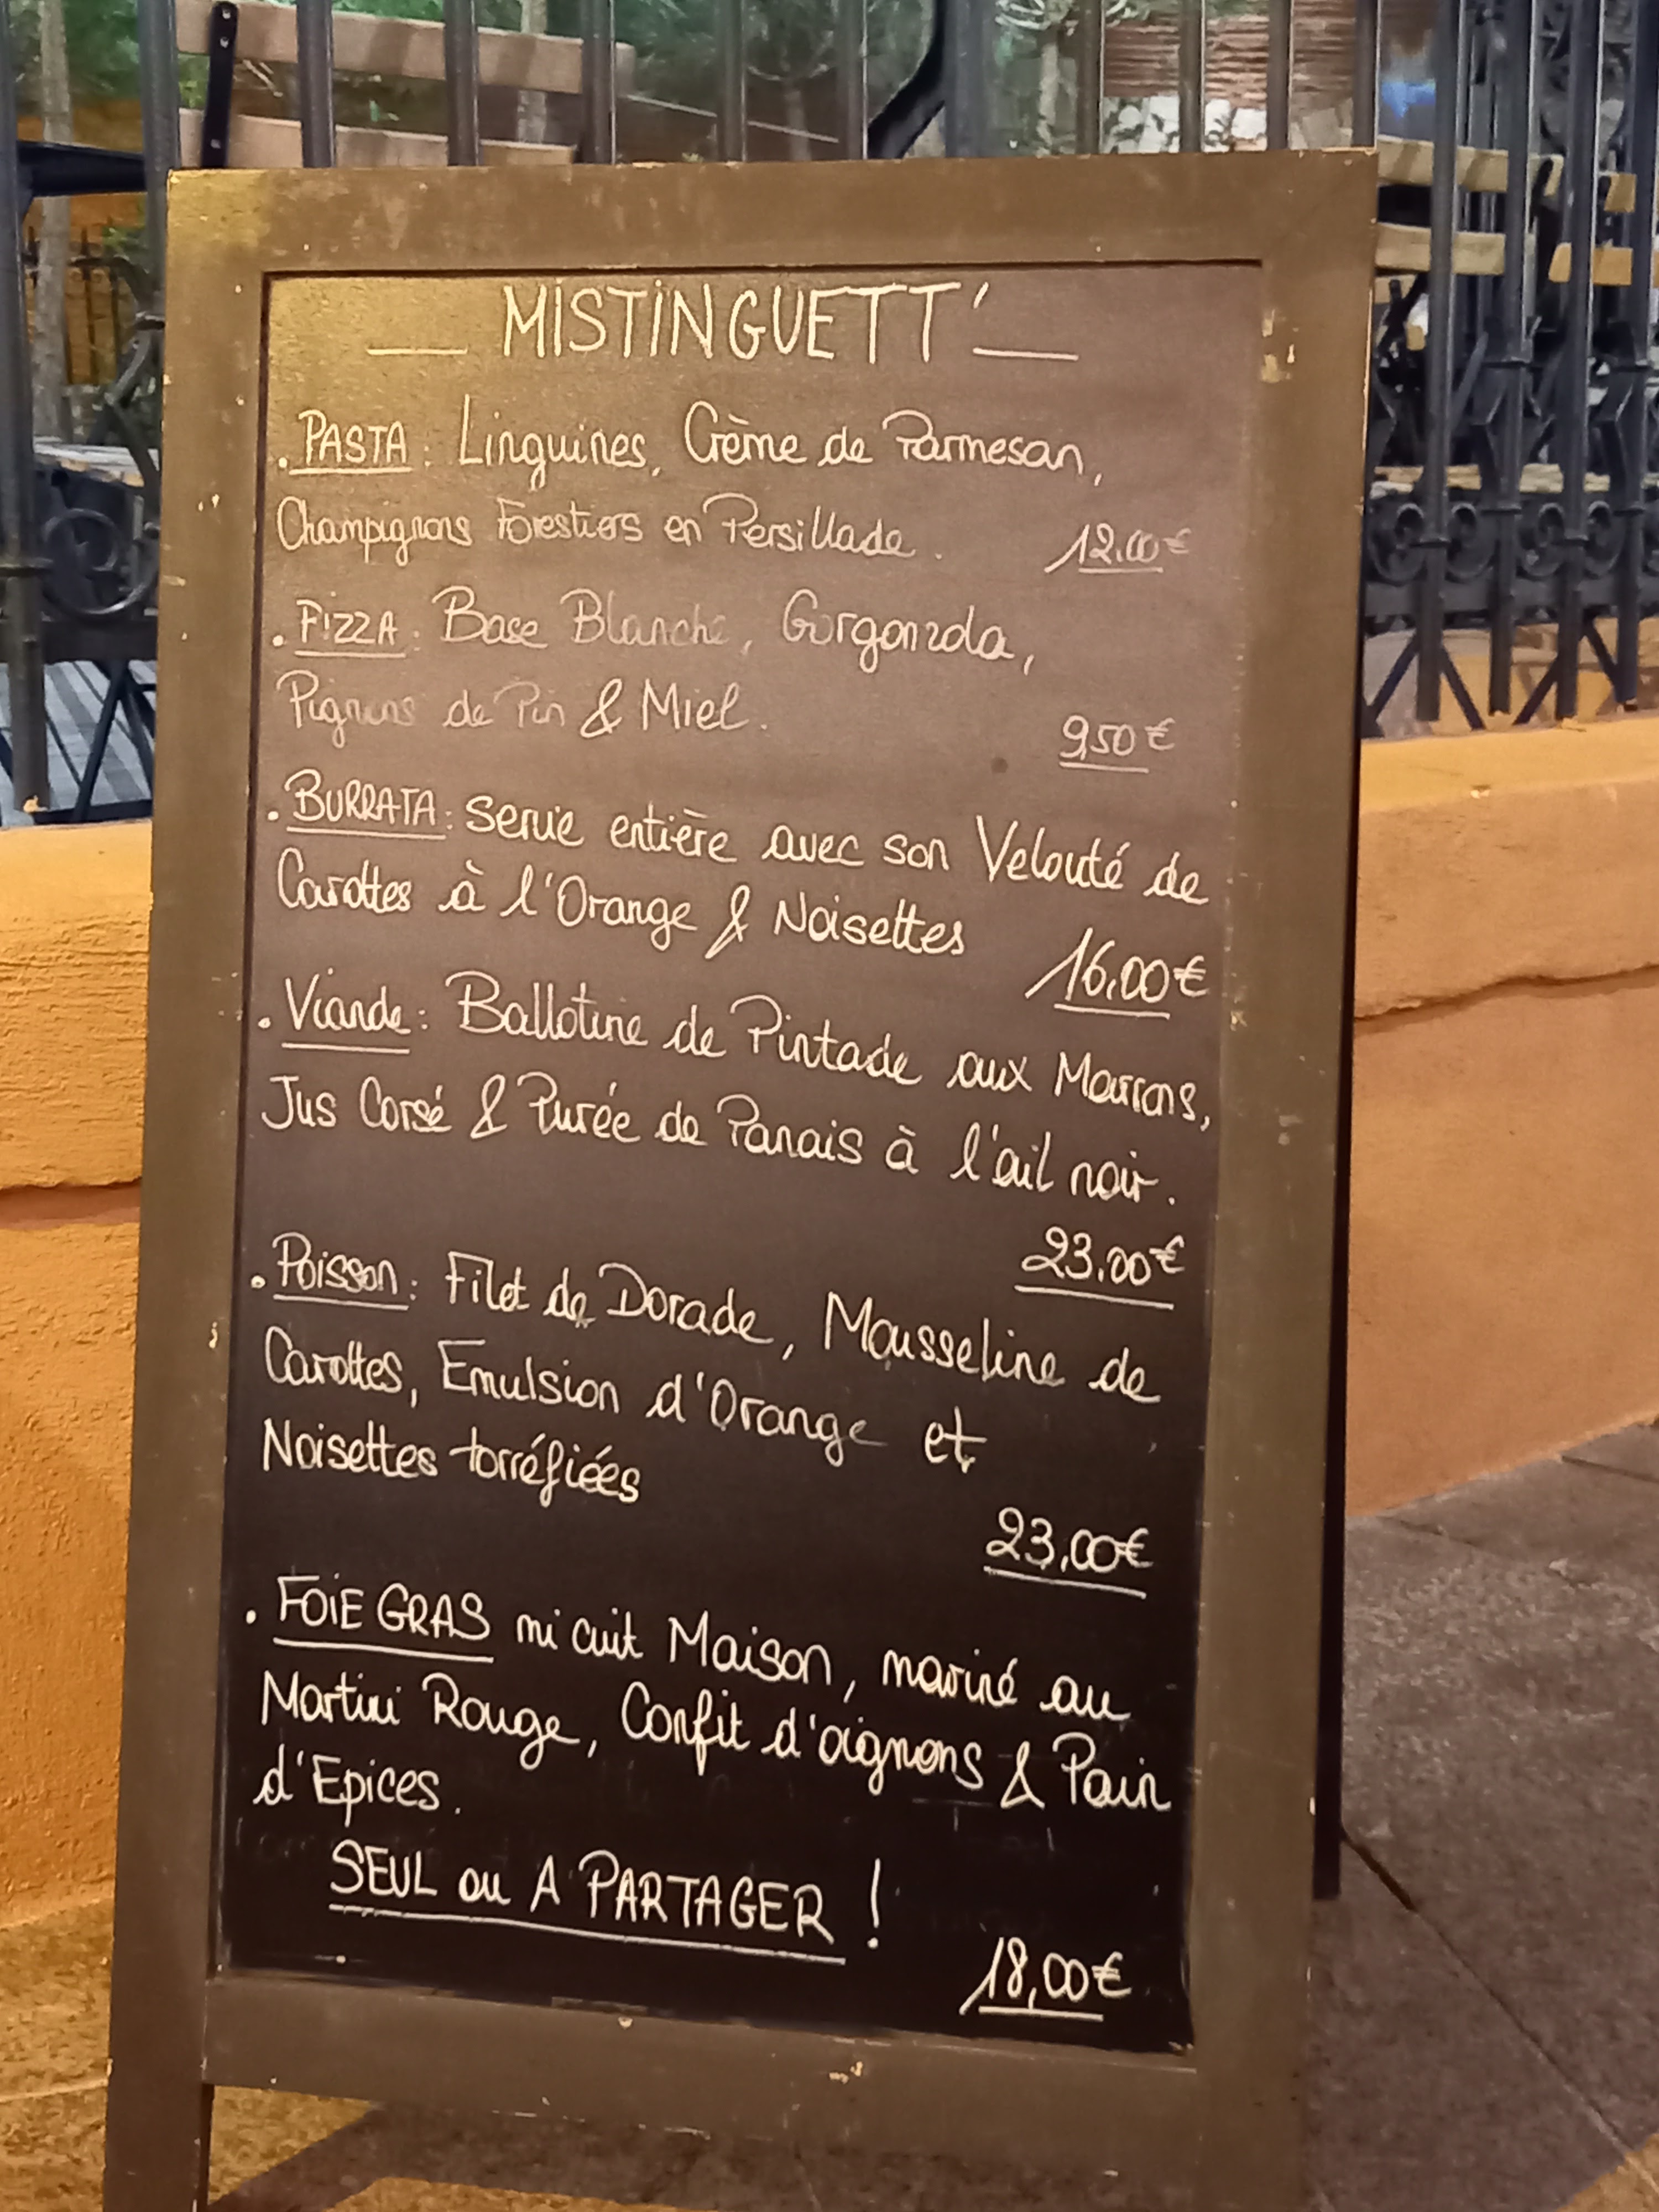 MISTINGUETT'
. PASTA : Linguines, Crème de Parmesan,
Champignons Forestiers en Persillade. 12.00€
. PIZZA : Base Blanche, Gorgonzola,
Pignons de Pin & Miel. 9,50€
. BURRATA : servie entière avec son Velouté de
Carottes à l'Orange & Noisettes 16,00€
. Viande : Ballotine de Pintade aux Marrons,
Jus Corsé & Purée de Panais à l'ail noir.
23.00€
. Poisson : Filet de Dorade, Mousseline de
Carottes, Emulsion d'Orange et
Noisettes torréfiées
23,00€
. FOIE GRAS mi cuit Maison, mariné au
Martini Rouge, Confit d'oignons & Pain
d'Epices.
SEUL ou A PARTAGER !
18,00€